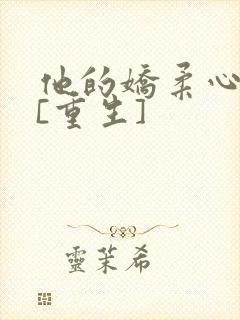 他的嬌柔心
[重生]
靈茉希